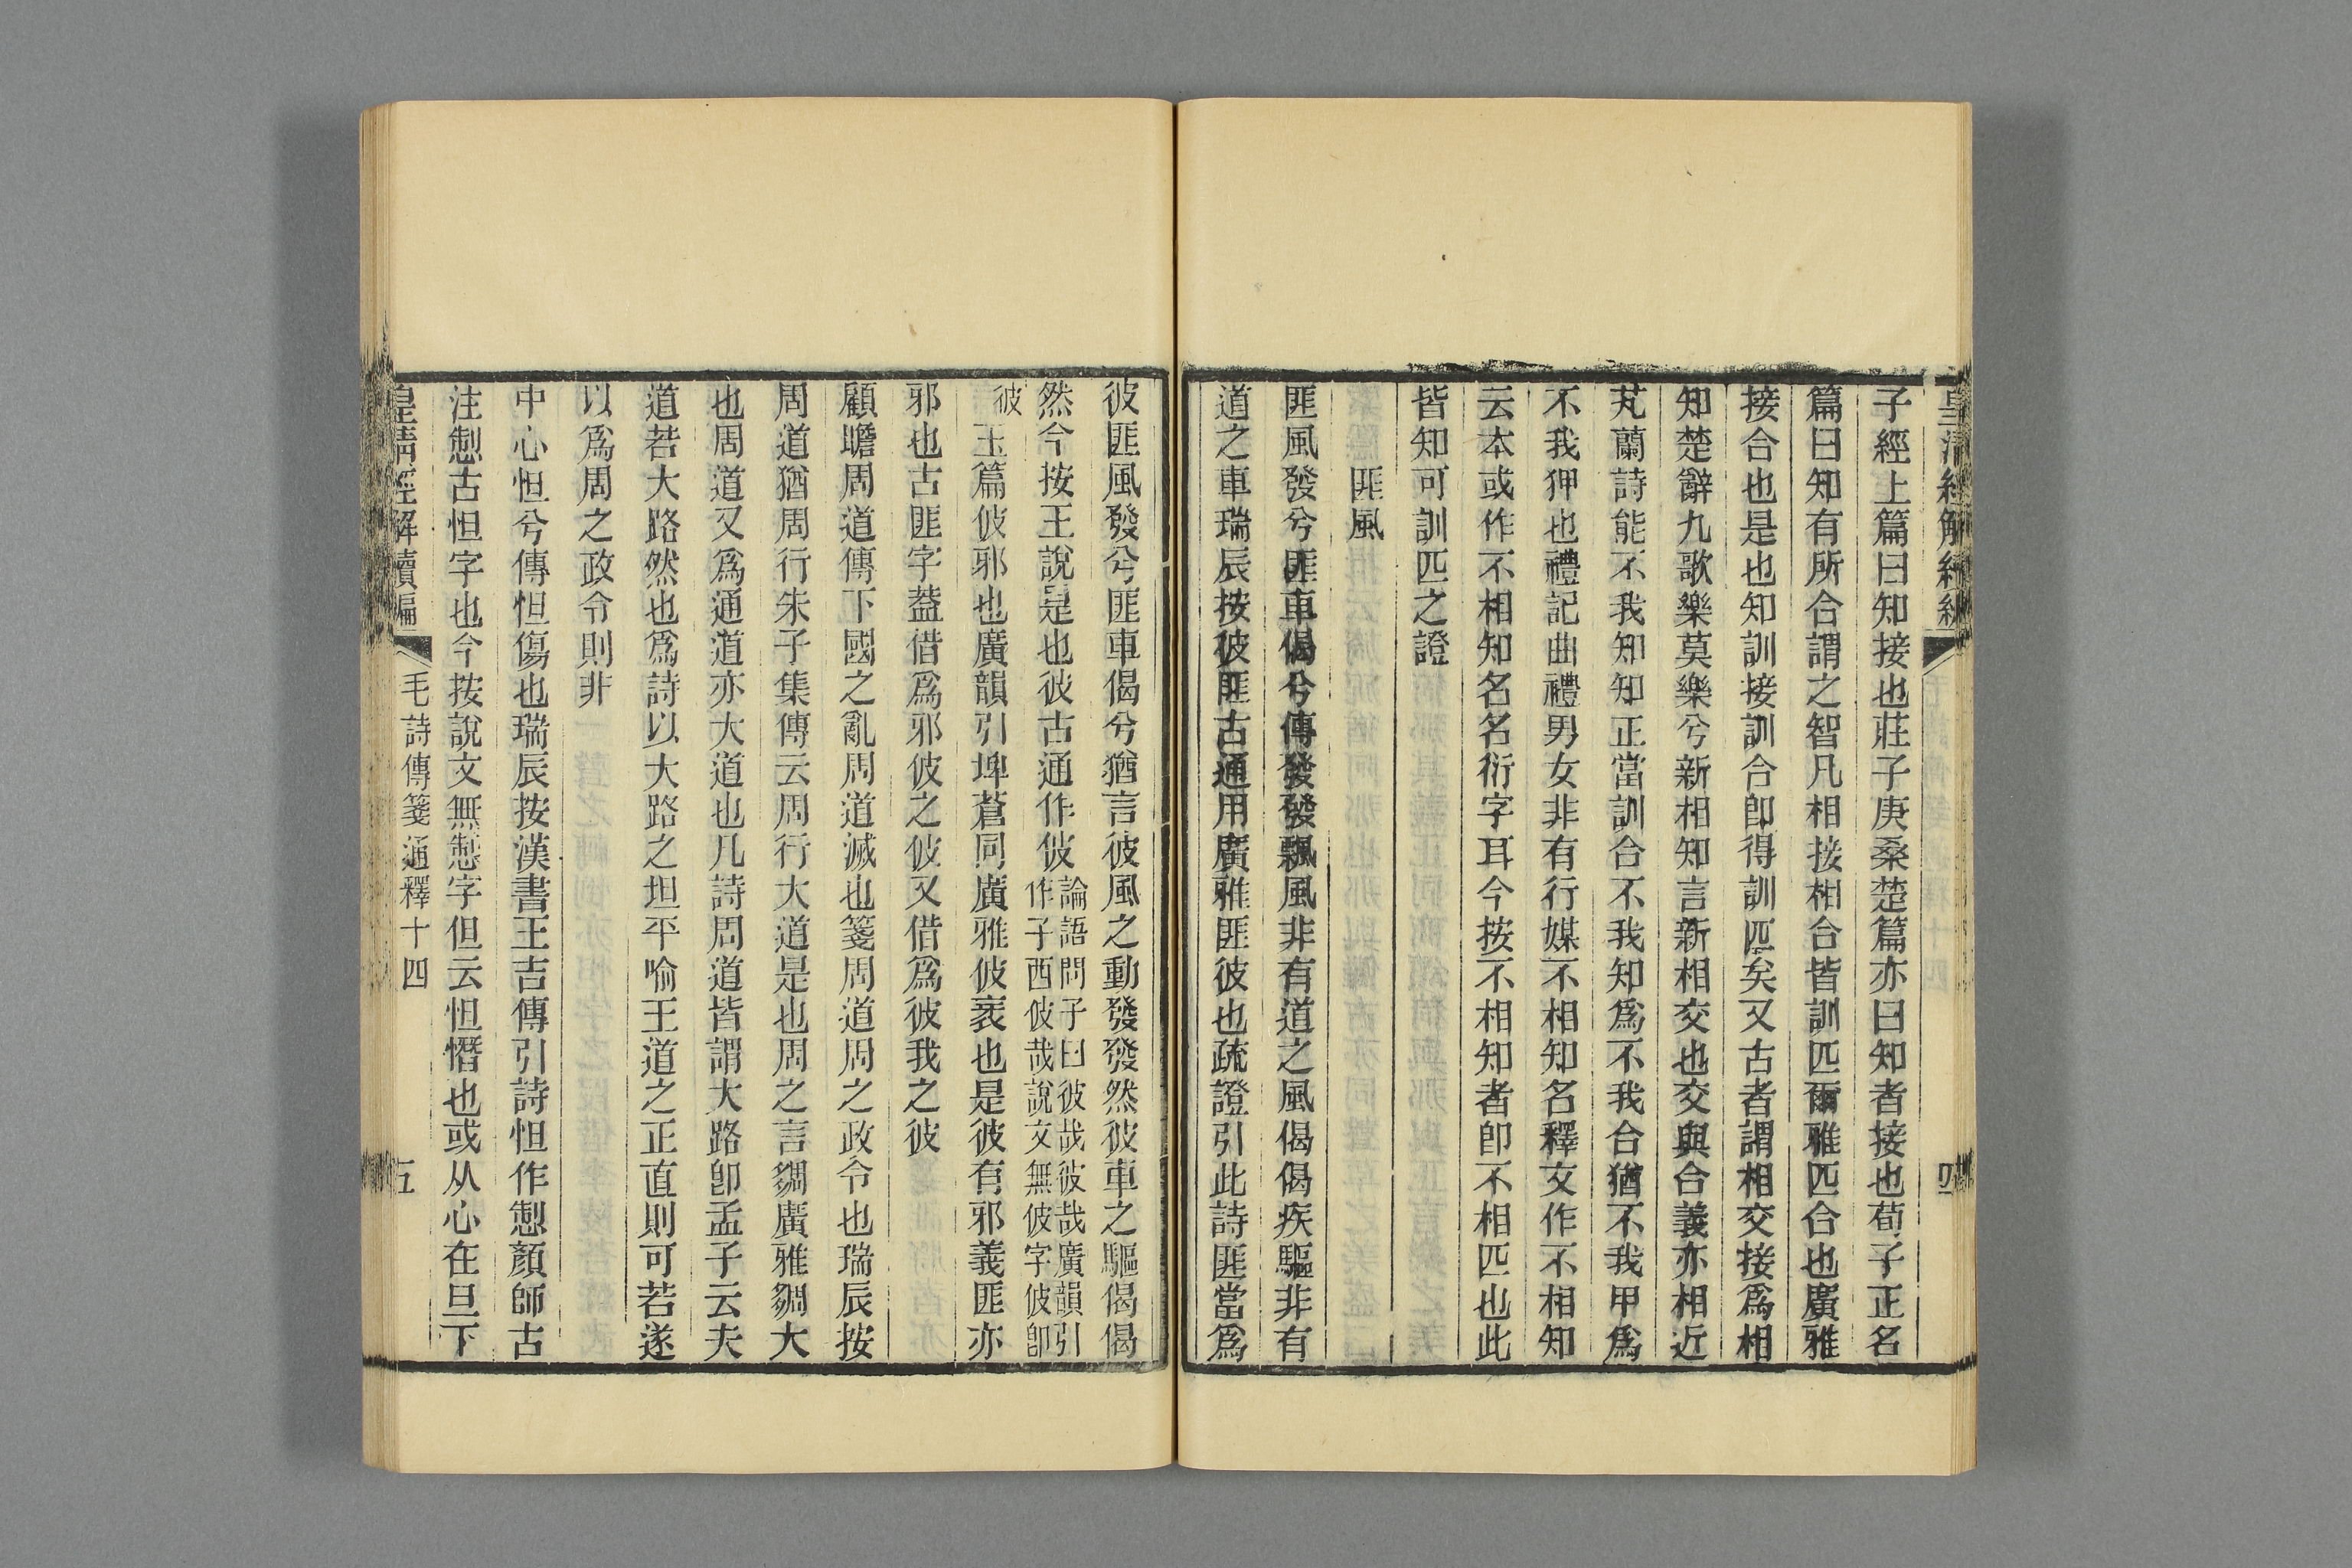 子經上篇曰知接也莊子庚桑楚篇亦曰知者接也荀子正名
篇曰知有所合謂之智凡相接相合皆訓匹爾雅匹合也廣雅
接合也是也知訓接訓合卽得訓匹矣又古者謂相交接爲相
知楚辭九歌樂莫樂兮新相知言新相交也交與合義亦相近
芄蘭詩能不我知知正當訓合不我知爲不我合猶不我甲爲
不我狎也禮記曲禮男女非有行媒不相知名釋文作不相知
云本或作不相知名名衍字耳今按不相知者卽不相匹也此
皆知可訓匹之證
匪風
匪風發兮匪車偈兮傳發發飄風非有道之風偈偈疾驅非有
道之車瑞辰按彼匪古通用廣雅匪彼也疏證引此詩匪當爲
彼匪風發兮匪車偈兮猶言彼風之動發發然彼車之驅偈偈
然今按王說是也彼古通作佊論語問子曰彼哉彼哉廣韻引
作子西佊哉說文無佊字佊卽
彼
玉篇佊邪也廣韻引埤蒼同廣雅佊衺也是彼有邪義匪亦
邪也古匪字葢借爲邪佊之佊又借爲彼我之彼
顧瞻周道傳下國之亂周道滅也箋周道周之政令也瑞辰按
周道猶周行朱子集傳云周行大道是也周之言綢廣雅綢大
也周道又爲通道亦大道也凡詩周道皆謂大路卽孟子云夫
道若大路然也爲詩以大路之坦平喻王道之正直則可若遂
以爲周之政令則非
中心怛兮傳怛傷也瑞辰按漢書王吉傳引詩怛作㤠顏師古
注㤠古怛字也今按說文無㤠字但云怛憯也或从心在旦下
皇淸經解續編
毛詩傳箋通釋十四
五